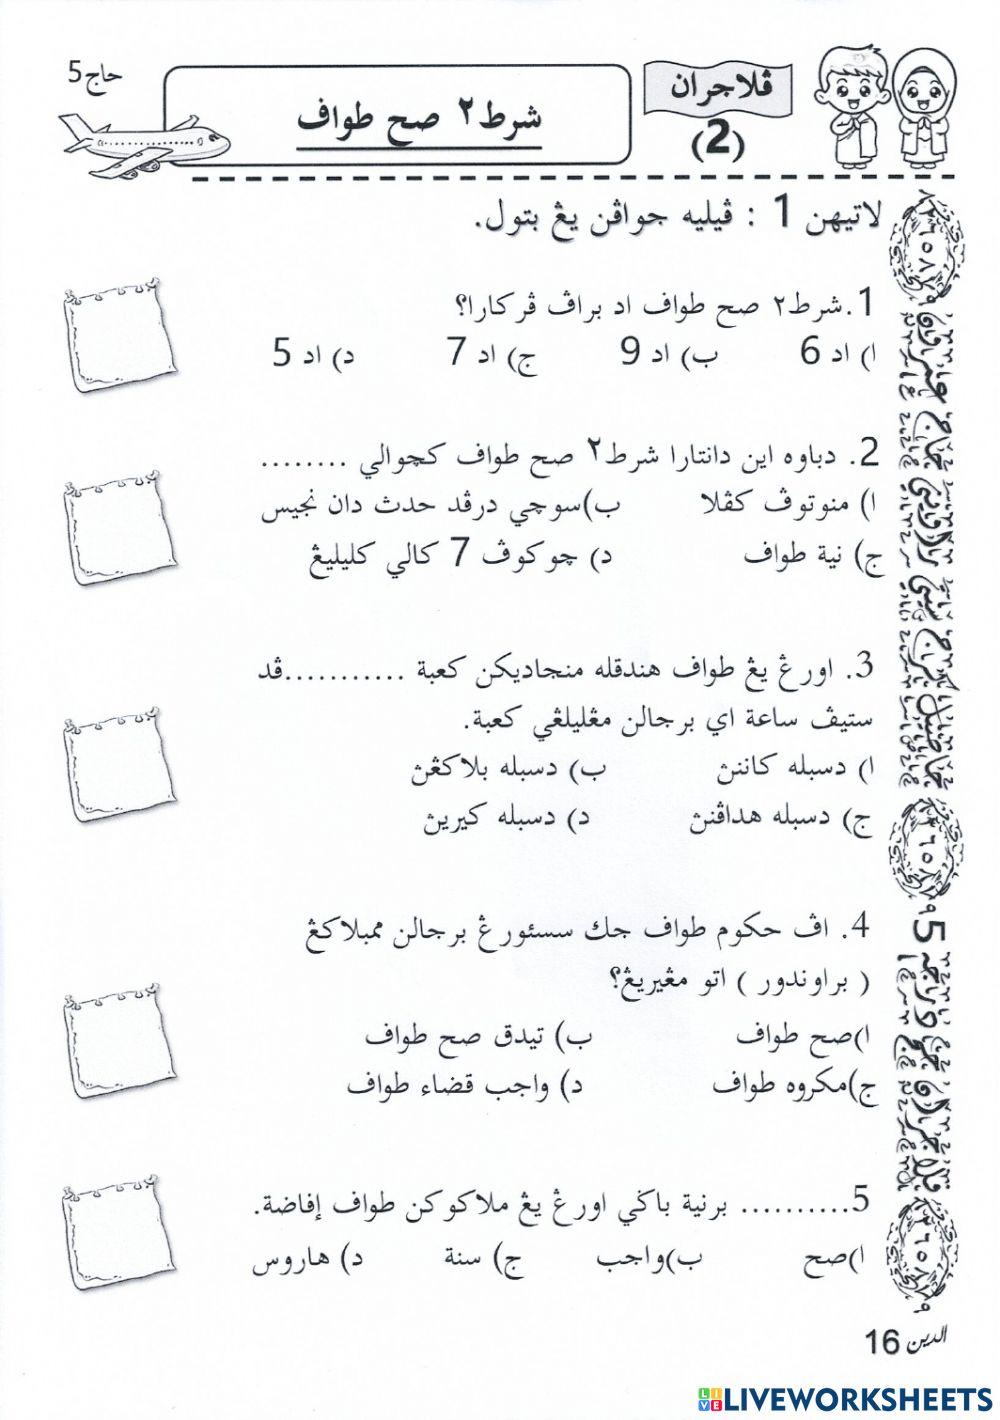 حاج 5
شرط٢ صح طواف
ڤلاجران
(2)
لاتيهن 1 : ڤيليه جواڤن يڠ بتول.
1.شرط٢ صح طواف اد براڤ ڤركارا؟
ا) اد 6 ب) اد 9 ج) اد 7 د) اد 5
2. دباوه اين دانتارا شرط٢ صح طواف كچوالي ........
ا) منوتوڤ كڤلا ب)سوچي درڤد حدث دان نجيس
ج) نية طواف د) چوكوڤ 7 كالي كليليڠ
3. اورڠ يڠ طواف هندقله منجاديكن كعبة ...........ڤد
ستيڤ ساعة اي برجالن مڠليلڠي كعبة.
ا) دسبله كاننڽ ب) دسبله بلاكڠڽ
ج) دسبله هداڤنڽ د) دسبله كيريڽ
4. اڤ حكوم طواف جك سسئورڠ برجالن ممبلاكڠ
( براوندور ) اتو مڠيريڠ؟
ا)صح طواف ب) تيدق صح طواف
ج)مكروه طواف د) واجب قضاء طواف
5.......... برنية باݢي اورڠ يڠ ملاكوكن طواف إفاضة.
ا)صح ب)واجب ج) سنة د) هاروس
الدين 16
LIVEWORKSHEETS